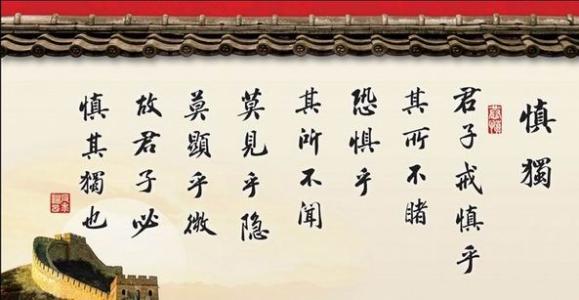 慎獨
君子戒慎乎
其所不睹
恐惧乎
其所不闻
莫見乎隐
莫顯乎微
故君子必
慎其獨也